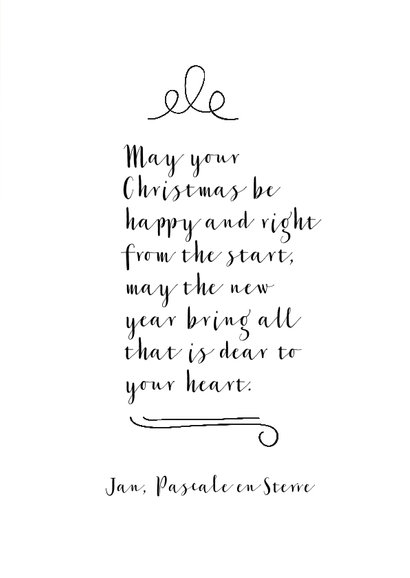 May your
Christmas be
happy and right
from the start,
may the new
year bring all
that is dear to
your heart.
Jan, Pascale en Sterre